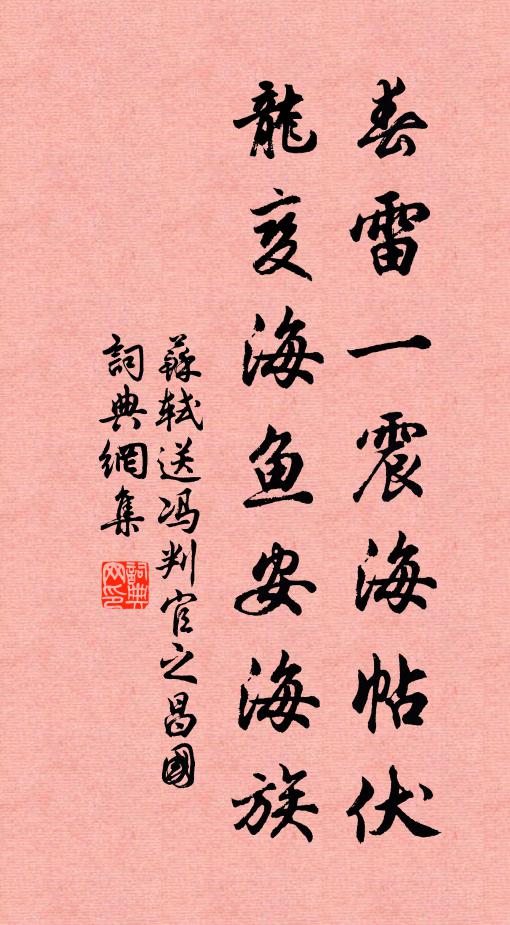 春雷一震海帖伏
龍变海鱼安海族
蘇轼送冯判官之昌國
詞典網集
詞典
网印